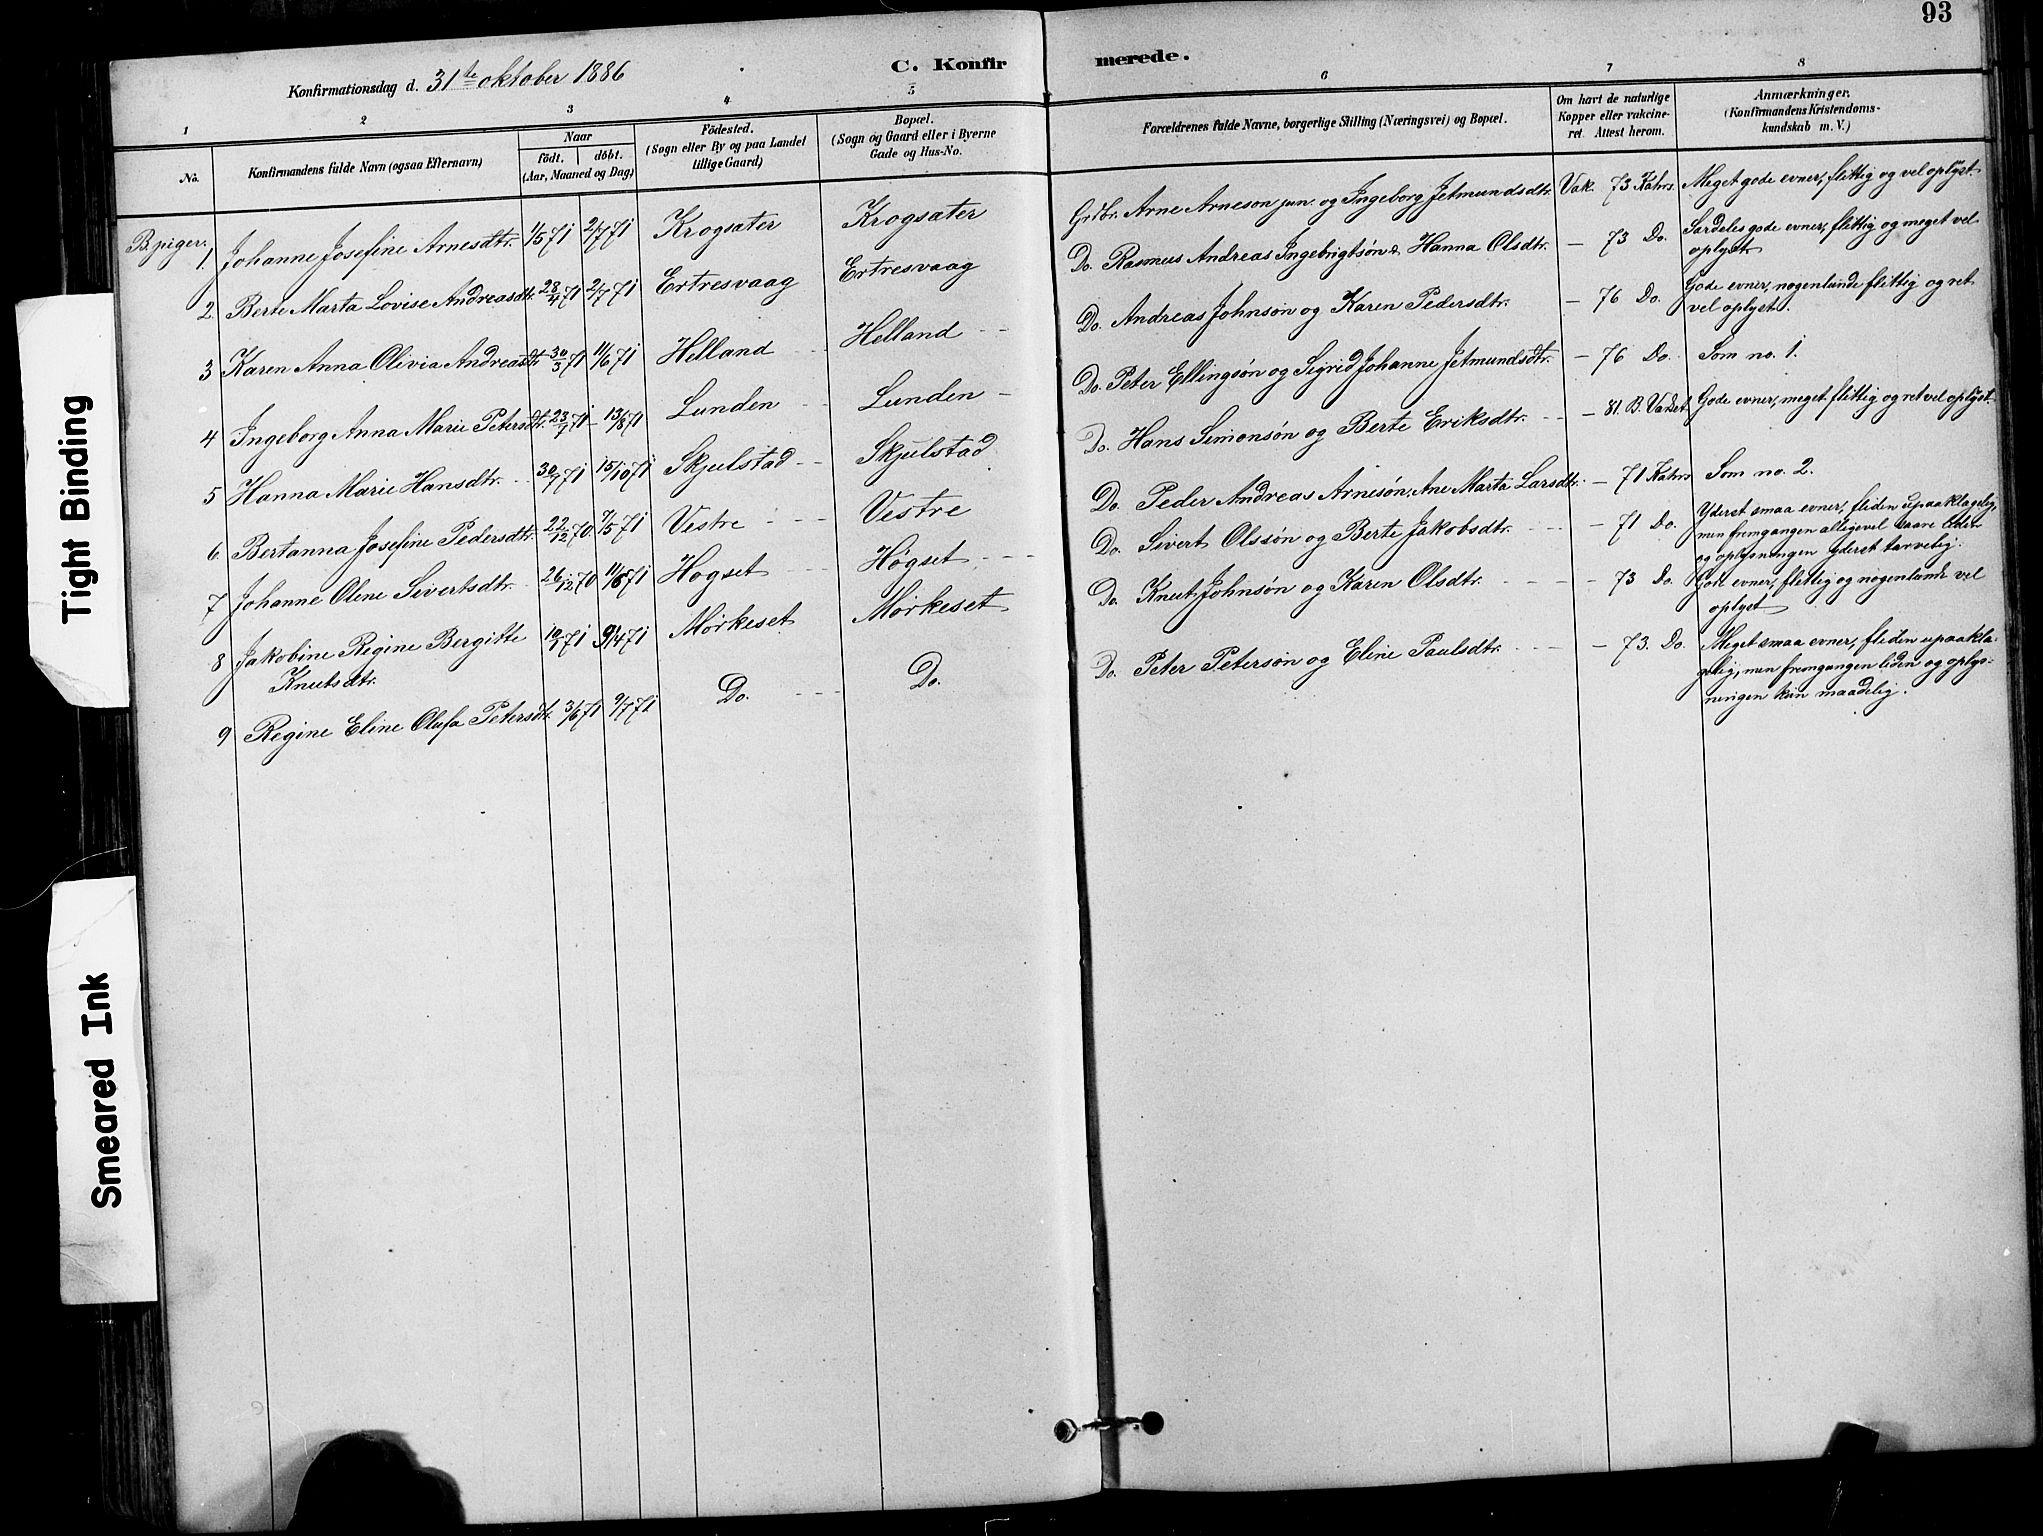 93
Konfirmationsdag d. 31te oktober 1886
C. Konfir merede.
1 2 3 4 5 6 7 8
No.
Konfirmandens fulde Navn (ogsaa Efternavn)
Naar
født. døbt.
(Aar, Maaned og Dag)
Födested.
(Sogn eller By og paa Landet
tillige Gaard)
Bopæl.
(Sogn og Gaard eller i Byerne
Gade og Hus-No.
Forældrenes fulde Navne, borgerlige Stilling (Næringsvei) og Bopæl.
Om havt de naturlige
Kopper eller vakcine-
ret. Attest herom.
Anmærkninger.
(Konfirmandens Kristendoms-
kundskab m. V.)
B. piger.
1. Johanne Josefine Arnesdtr. 1/5 71 2/7 71 Krogsater Krogsater Grdbr. Arne Arneson jun. og Ingeborg Jetmundsdtr. Vak. 73 Kahrs. Meget gode evner, flittig og vel oplyst
2. Berte Marta Lovise Andreasdtr. 28/4 71 2/7 71 Ertresvaag Ertresvaag Do. Rasmus Andreas Ingebrigtsøn & Hanna Olsdtr. – 73 Do. Særdeles gode evner, flittig og meget vel
oplyst.
3 Karen Anna Olivia Andreasdtr. 30/3 71 11/6 71 Helland Helland Do. Andreas Johnsøn og Karen Pedersdtr. – 76 Do. Gode evner, nogenlunde flittig og ret
vel oplyst.
4 Ingeborg Anna Marie Petersdtr. 23/7 71 13/8 71 Lunden Lunden Do. Peter Ellingsøn og Sigrid Johanne Jetmundsdtr. – 76 Do. Som no. 1.
5 Hanna Marie Hansdtr. 30/9 71 15/10 71 Skjulstad Skjulstad Do. Hans Simonsøn og Berte Eriksdtr. – 81. B. Vadset Gode evner, meget flittig og ret vel oplyst.
6. Bertanna Josefine Pedersdtr. 22/12 70. 7/5 71 Vestre Vestre Do. Peder Andreas Arnesøn, Ane Marta Larsdtr. – 71 Kahrs Som no. 2.
7 Johanne Oline Sivertsdtr. 26/12 70 11/6 71 Høgset Høgset Do. Sivert Olssøn og Berte Jakobsdtr. – 71 Do. Yderst smaa evner, fliden upaaklagelig,
men fremgangen alligevel saare liden
og oplysningen yderst tarvelig.
8 Jakobine Regine Bergitte
Knutsdtr. 71 9/4 71 Mørkeset Mørkeset Do. Knut Johnsøn og Karen Olsdtr. – 73 Do. Gode evner, flittig og nogenlunde vel
oplyst
9 Regine Eline Olufa Petersdtr. 3/6 71 9/7 71 Do. Do. Do. Peter Petersøn og Eline Paulsdtr. – 73. Do. Meget smaa evner, fliden upaakla-
gelig, men fremgangen liden og oplys-
ningen kun maadelig.
Tight Binding
Smeared Ink